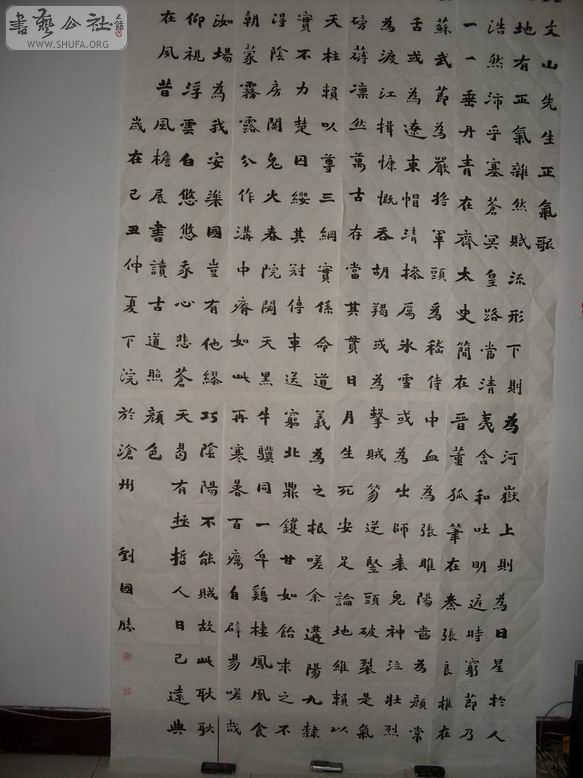 文山先生正氣歌
地有正氣雜然賦流形下則為河嶽上則為日星於人
浩然沛乎塞蒼冥皇路當清夷含和吐明廷時窮節乃
一一垂丹青在齊太史簡在晉董狐筆在秦張良椎在
蘇武節為嚴將軍頭為嵇侍中血為張睢陽齒為顏常
舌或為遼東帽清操厲冰雪或為出師表鬼神泣壯烈
為渡江楫慷慨吞胡羯或為擊賊笏逆豎頭破裂是氣
磅礡凜然萬古存當其貫日月生死安足論地維賴以
天柱賴以尊三綱實係命道義為之根嗟余遘陽九隸
實不力楚囚纓其冠傳車送窮北鼎鑊甘如飴求之不
得陰房闃鬼火春院閟天黑牛驥同一皁鷄棲鳳凰食
朝蒙霧露分作溝中瘠如此再寒暑百癘自辟易嗟哉
汝場為我安樂國豈有他繆巧陰陽不能賊故此耿耿
仰視浮雲白悠悠我心悲蒼天曷有極哲人日已遠典
在夙昔風檐展書讀古道照顏色
歲在己丑仲夏下浣於滄州 劉國勝
書藝公社
www.SHUFA.ORG